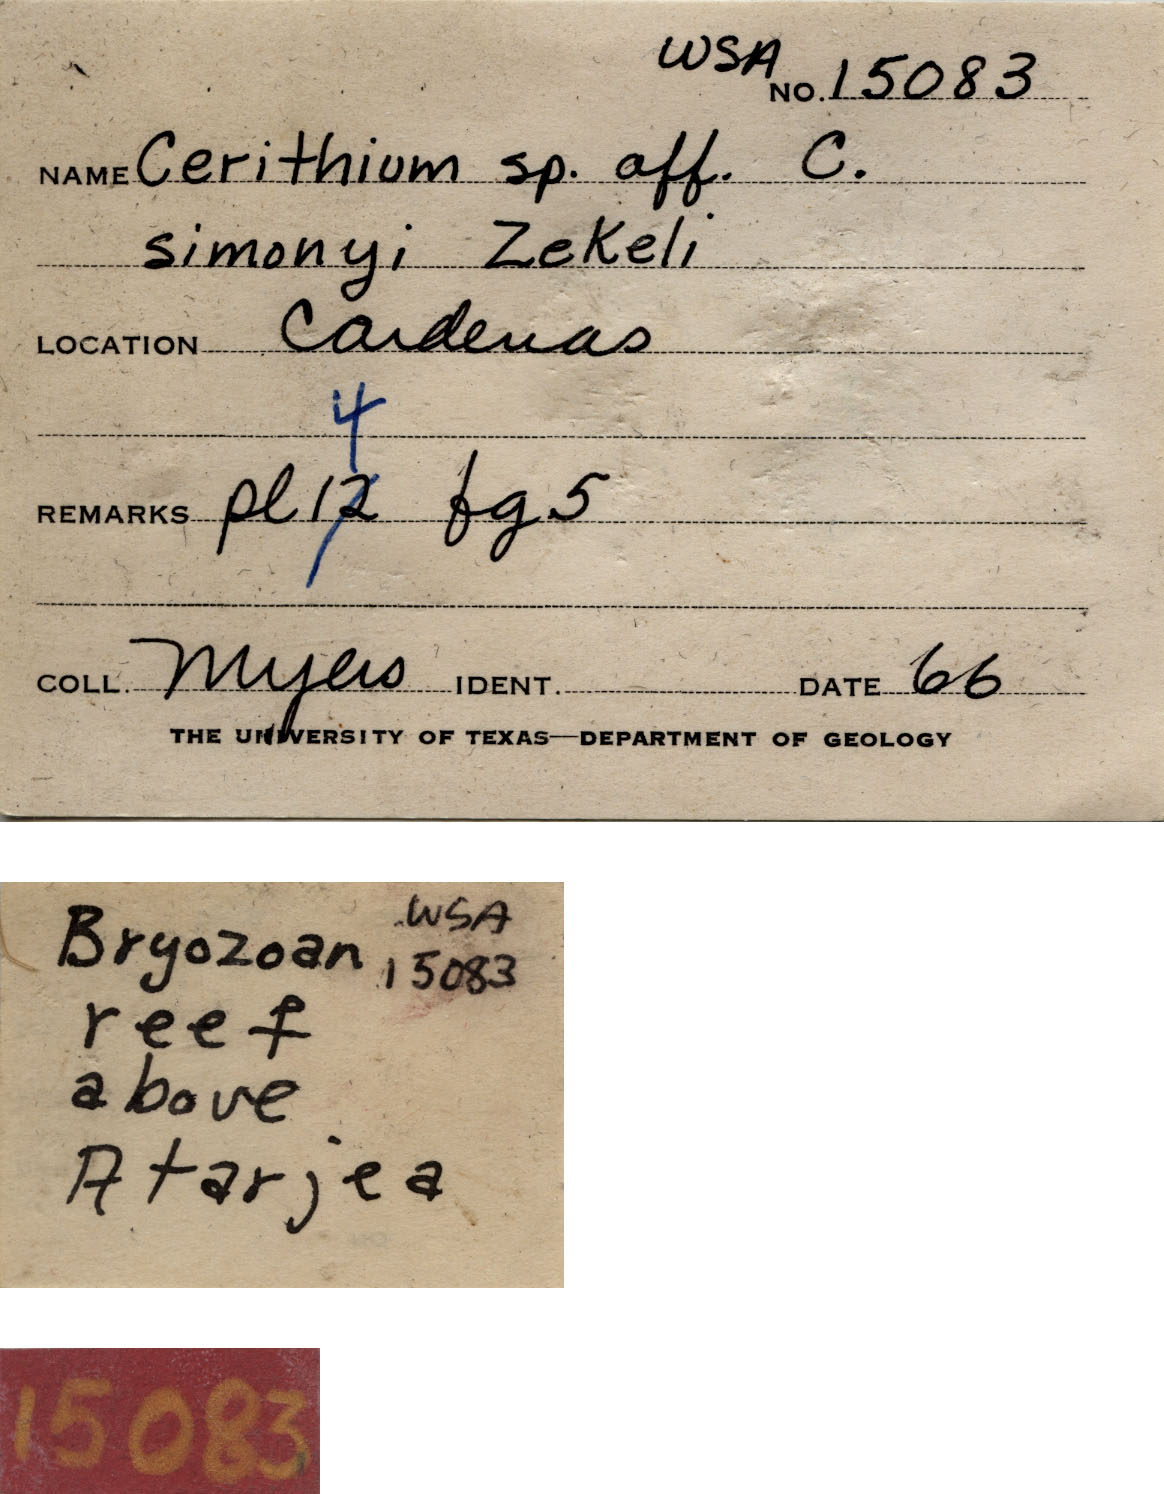 WSA
NO. 15083
NAME Cerithium sp. aff. C.
simonyi Zekeli
LOCATION Cardenas
4
REMARKS pl 12 fg 5
COLL. Myers IDENT. DATE 66
THE UNIVERSITY OF TEXAS—DEPARTMENT OF GEOLOGY
Bryozoan WSA
reef 15083
above
Atarjea
15083